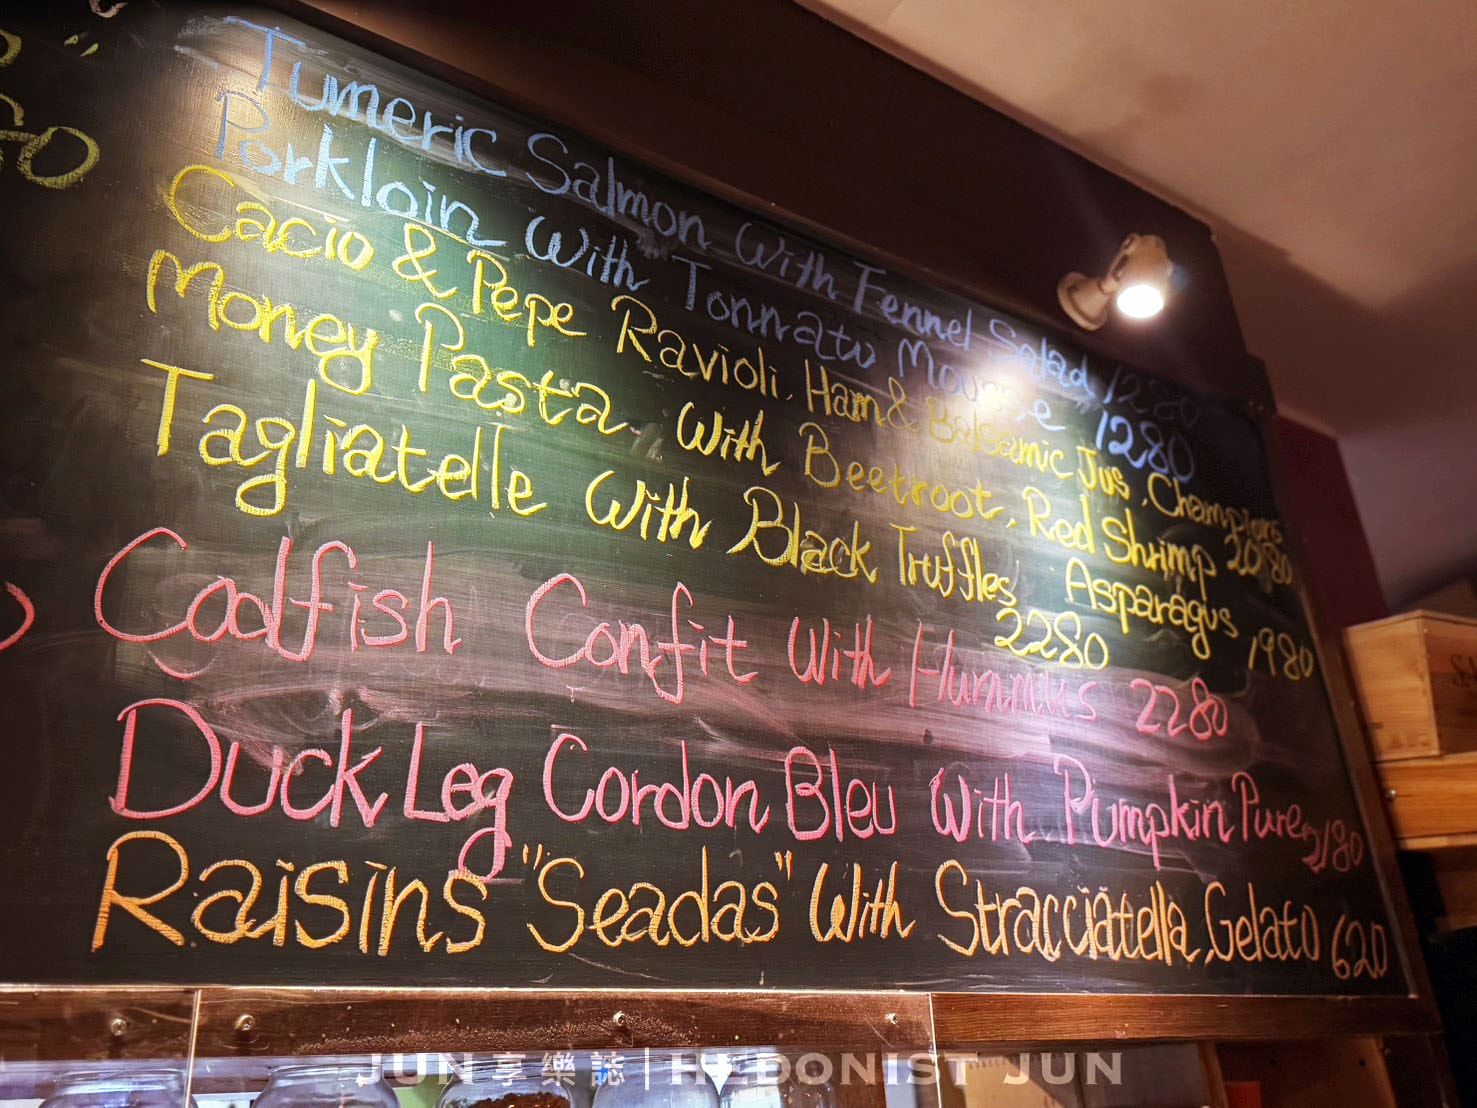 Tumeric Salmon With Fennel Salad 1280
Porkloin With Tonnato Mousse 1280
Cacio & Pepe Ravioli, Ham & Balsamic Jus, Champions 2080
Money Pasta With Beetroot, Red Shrimp Asparagus 1980
Tagliatelle With Black Truffles 2280
Codfish Confit With Hummus 2280
Duck Leg Cordon Bleu With Pumpkin Puree 2180
Raisins "Seadas" With Stracciatella, Gelato 620
JUN享樂誌 | HEDONIST JUN